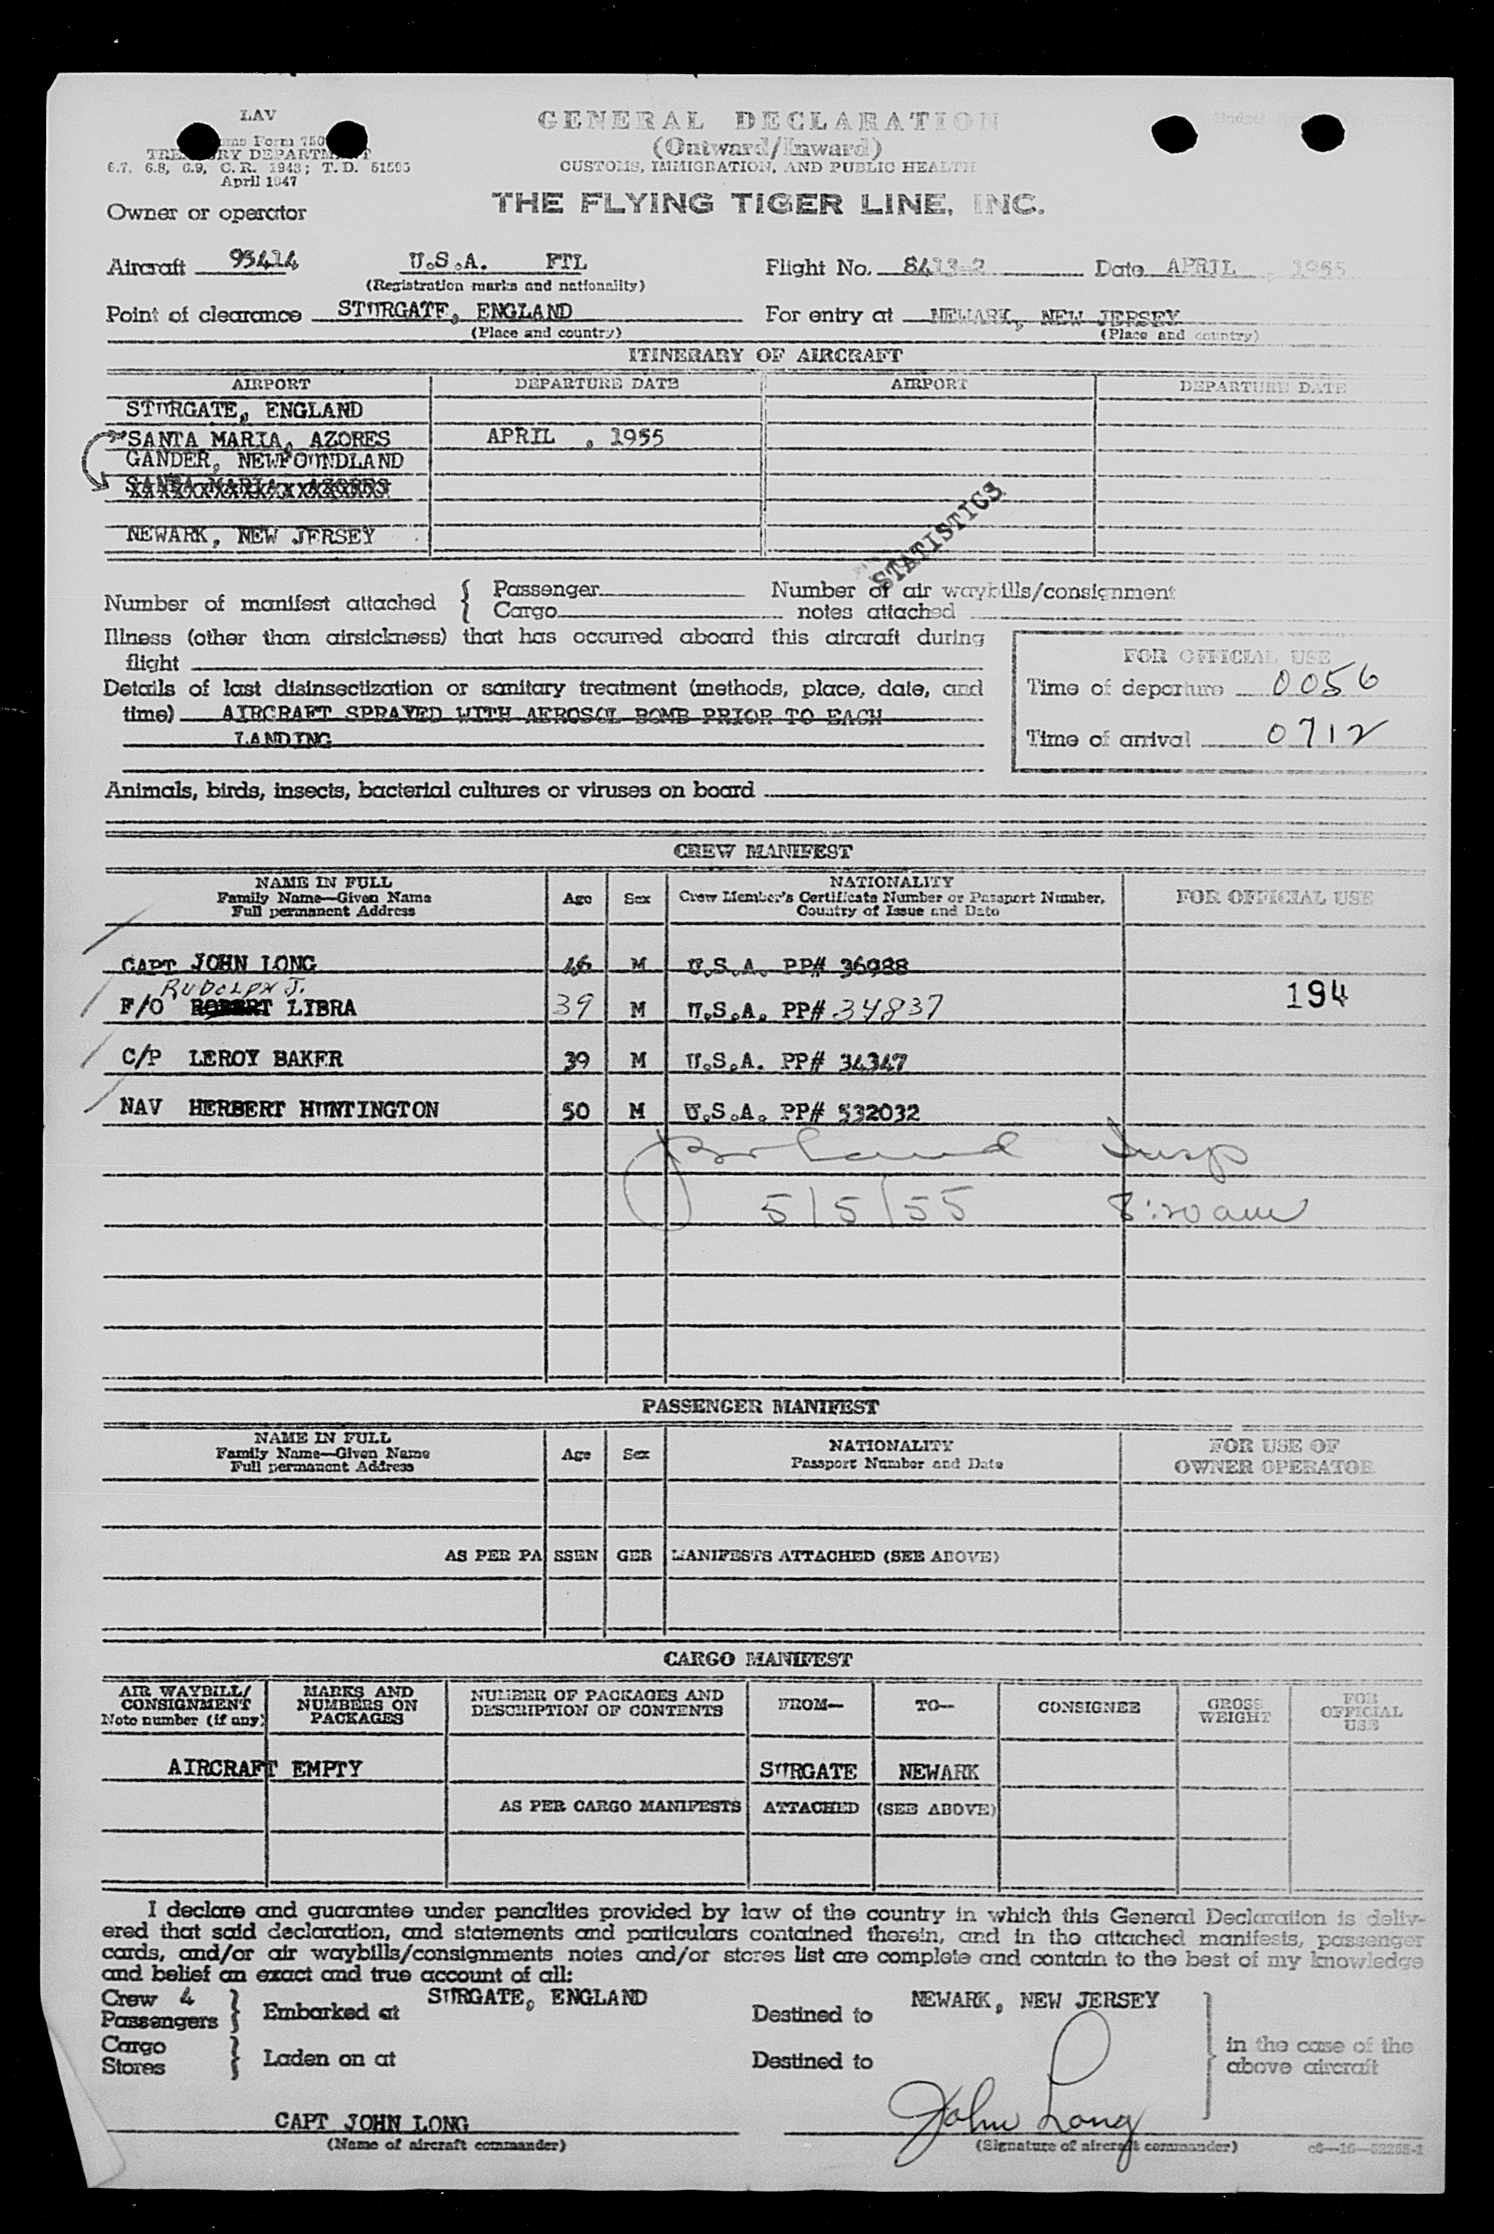 LAV
GENERAL DECLARATION
(Outward/Inward)
CUSTOMS, IMMIGRATION, AND PUBLIC HEALTH
Form 750
TREASURY DEPARTMENT
6.7, 6.8, 6.9, C. R. 1943; T. D. 51595
April 1947
THE FLYING TIGER LINE, INC.
Owner or operator
Aircraft 95414 U.S.A. FTL Flight No. 8413-2 Date APRIL , 1955
(Registration marks and nationality)
Point of clearance STURGATE, ENGLAND For entry at NEWARK, NEW JERSEY
(Place and country) (Place and country)
ITINERARY OF AIRCRAFT
AIRPORT DEPARTURE DATE AIRPORT DEPARTURE DATE
STURGATE, ENGLAND
SANTA MARIA, AZORES APRIL , 1955
GANDER, NEWFOUNDLAND
SANTA MARIA, AZORES
NEWARK, NEW JERSEY
STATISTICS
Number of manifest attached { Passenger Number of air waybills/consignment
Cargo notes attached
Illness (other than airsickness) that has occurred aboard this aircraft during
flight
FOR OFFICIAL USE
Details of last disinsectization or sanitary treatment (methods, place, date, and Time of departure 0056
time) AIRCRAFT SPRAYED WITH AEROSOL BOMB PRIOR TO EACH
LANDING Time of arrival 0712
Animals, birds, insects, bacterial cultures or viruses on board
CREW MANIFEST
NAME IN FULL
Family Name—Given Name
Full permanent Address Age Sex NATIONALITY
Crew Member's Certificate Number or Passport Number,
Country of Issue and Date FOR OFFICIAL USE
CAPT JOHN LONG 46 M U.S.A. PP# 36988
RUDOLPH J.
F/O ROBERT LIBRA 39 M U.S.A. PP# 34837 194
C/P LEROY BAKER 39 M U.S.A. PP# 34347
NAV HERBERT HUNTINGTON 50 M U.S.A. PP# 532032
Insp
5/5/55 8:20 am
PASSENGER MANIFEST
NAME IN FULL
Family Name—Given Name
Full permanent Address Age Sex NATIONALITY
Passport Number and Date FOR USE OF
OWNER OPERATOR
AS PER PASSENGER MANIFESTS ATTACHED (SEE ABOVE)
CARGO MANIFEST
AIR WAYBILL/
CONSIGNMENT
Note number (if any) MARKS AND
NUMBERS ON
PACKAGES NUMBER OF PACKAGES AND
DESCRIPTION OF CONTENTS FROM— TO— CONSIGNEE GROSS
WEIGHT FOR
OFFICIAL
USE
AIRCRAFT EMPTY SURGATE NEWARK
AS PER CARGO MANIFESTS ATTACHED (SEE ABOVE)
I declare and guarantee under penalties provided by law of the country in which this General Declaration is deliv-
ered that said declaration, and statements and particulars contained therein, and in the attached manifests, passenger
cards, and/or air waybills/consignments notes and/or stores list are complete and contain to the best of my knowledge
and belief an exact and true account of all:
Crew 4
Passengers } Embarked at SURGATE, ENGLAND Destined to NEWARK, NEW JERSEY
Cargo
Stores } Laden on at Destined to
in the case of the
above aircraft
CAPT JOHN LONG John Long
(Name of aircraft commander) (Signature of aircraft commander) c6—16—52255-1